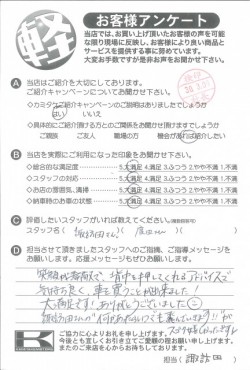 軽
お客様アンケート
当店では、お買い上げ頂いたお客様の声を可能
な限り現場に反映し、お客様により良い商品と
サービスを提供する事に努めています。
大変お手数ですが是非お声をお聞かせ下さい。
A 当店はご紹介を大切にしております。
ご紹介キャンペーンについてお聞かせ下さい。
◇カミタケご紹介キャンペーンのご説明はありましたでしょうか
はい いいえ
◇具体的にご紹介頂ける方とのご関係をお聞かせ頂けますでしょうか
ご親族 ご友人 職場の方 機会があれば紹介したい
B 当店を実際にご利用になった印象をお聞かせ下さい。
◇総合的な満足度 5.大満足 4.満足 3.ふつう 2.やや不満 1.不満
◇スタッフの対応 5.大満足 4.満足 3.ふつう 2.やや不満 1.不満
◇お店の雰囲気、清掃 5.大満足 4.満足 3.ふつう 2.やや不満 1.不満
◇納車時のお車の状態 5.大満足 4.満足 3.ふつう 2.やや不満 1.不満
C 評価したいスタッフがいれば教えてください。
スタッフ名(
D 担当させて頂きましたスタッフへのご指摘、ご指導メッセージを
お願いします。応援メッセージもぜひお願いします。
背中を押してくれるアドバイスで
気持ち良く 車を買うことが出来ました!
大満足です!ありがとうございました
ご協力に心よりお礼を申し上げます。
今後とも宜しくお引き立てご愛顧の程お願い申し上げます。
またのご来店を心からお待ちしております。
担当( 諏訪田 )